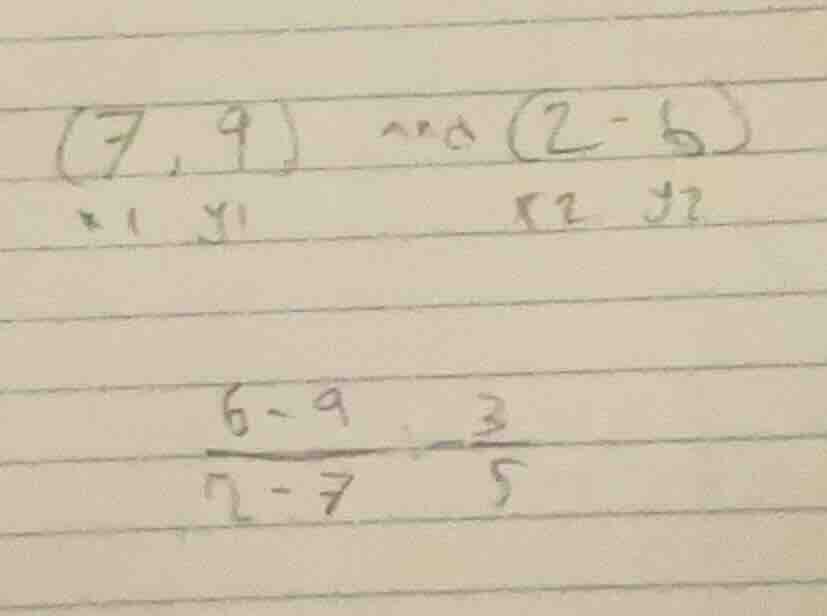 (7, 9) and (2 - 6)
x1 y1 x2 y2
6 - 9 = - 3
2 - 7 5